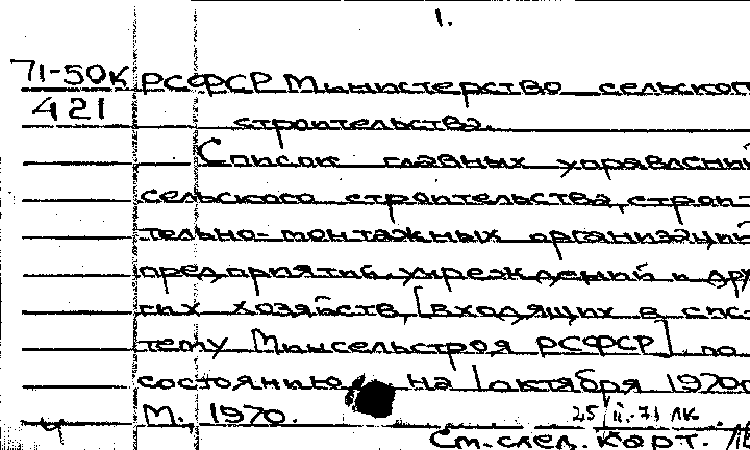 1.
71-50к РСФСР Министерство сельского
421 строительства.
Список главных управлений
сельского строительства, строи-
тельно-монтажных организаций
предприятий, учреждений и дру
гих хозяйств, [входящих в сис-
тему Минсельстроя РСФСР] по
состоянию на 1 октября 1970г
М., 1970.
25/II-71 ЛК
См. след. карт.